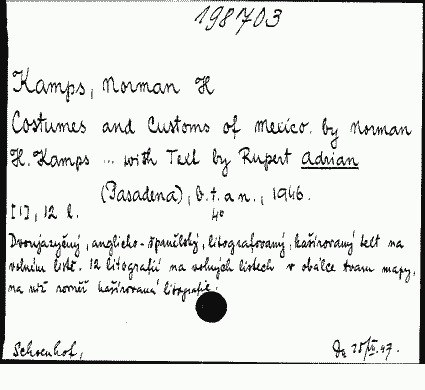 198703
Kamps, Norman H
Costumes and Customs of Mexico. by Norman
H. Kamps ... with Text by Rupert Adrian
(Pasadena), b.t.a n., 1946.
[1], 12 l. 4°
Dvoujazyčný, anglicko-španělský, litografovaný, kašírovaný text na
volném listě. 12 litografií na volných listech v obálce tvaru mapy,
na níž rovněž kašírovaná litografie.
Schoenhof,